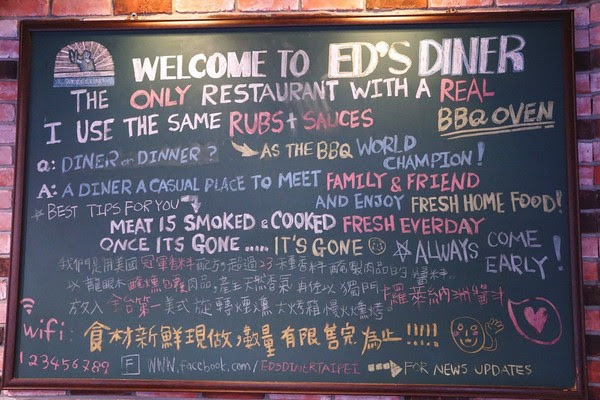 WELCOME TO ED'S DINER
THE ONLY RESTAURANT WITH A REAL
BBQ OVEN
I USE THE SAME RUBS + SAUCES
AS THE BBQ WORLD
CHAMPION!
Q: DINER or DINNER?
A: A DINER A CASUAL PLACE TO MEET FAMILY & FRIEND
AND ENJOY FRESH HOME FOOD!
BEST TIPS FOR YOU
MEAT IS SMOKED & COOKED FRESH EVERDAY
ONCE ITS GONE ..... IT'S GONE
ALWAYS COME
EARLY!
我們是用美國冠軍香料配方超過23種香料醃製肉品BBQ醬料...
以龍眼木醃燻肉品,產生天然香氣再佐以獨門卡羅來納洲醬汁
放入全台第一美式旋轉煙燻大烤箱慢火燻烤。
wifi: 食材新鮮現做,數量有限售完為止!!!!!
123456789
WWW.facebook.com/EDSDINERTAIPEI
FOR NEWS UPDATES